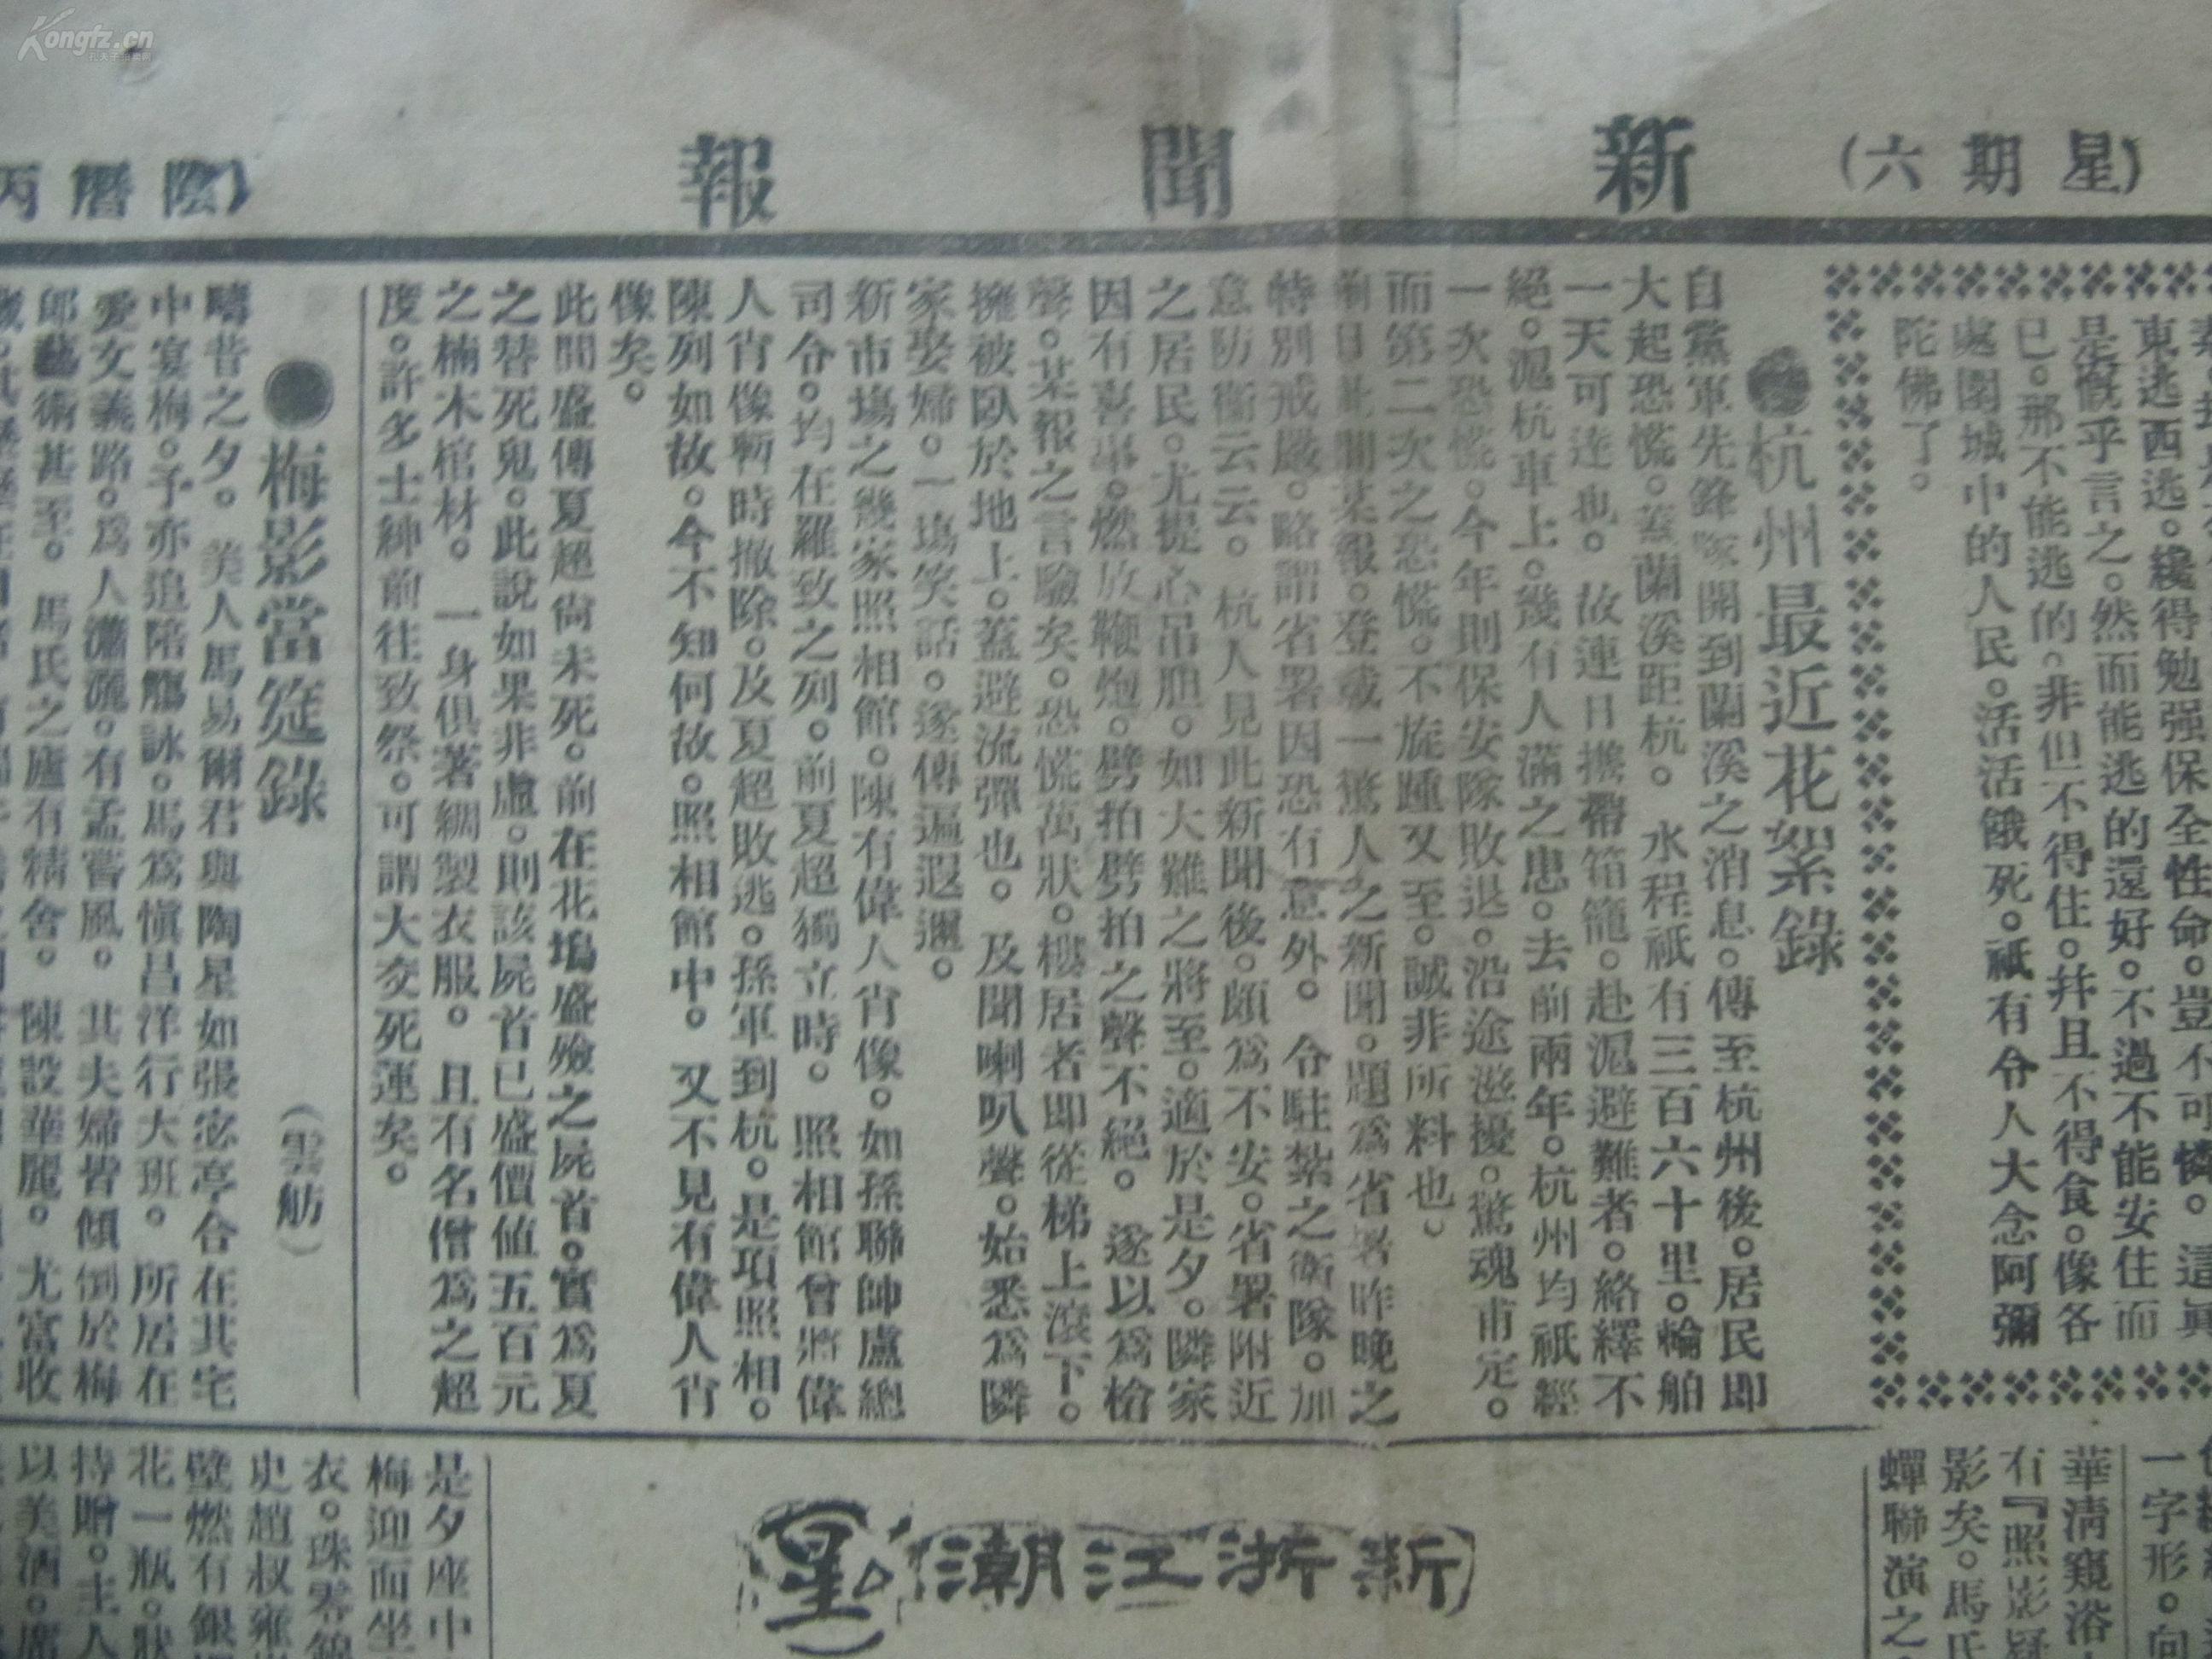 Kongfz.cn
(星期六)
新聞報
(陰曆丙
東逃西逃。纔得勉强保全性命。豈不可憐。這眞
是慨乎言之。然而能逃的還好。不過不能安住而
已。那不能逃的。非但不得住。幷且不得食。像各
處圍城中的人民。活活餓死。祇有令人大念阿彌
陀佛了。
杭州最近花絮錄
自黨軍先鋒隊開到蘭溪之消息。傳至杭州後。居民即
大起恐慌。蓋蘭溪距杭。水程祇有三百六十里。輪舶
一天可達也。故連日攜帶箱籠。赴滬避難者。絡繹不
絕。滬杭車上。幾有人滿之患。去前兩年。杭州均祇經
一次恐慌。今年則保安隊敗退。沿途滋擾。驚魂甫定。
而第二次之恐慌。不旋踵又至。誠非所料也。
前日此間某報。登載一驚人之新聞。題爲省署昨晚之
特別戒嚴。略謂省署因恐有意外。令駐紮之衛隊。加
意防衛云云。杭人見此新聞後。頗爲不安。省署附近
之居民。尤提心吊胆。如大難之將至。適於是夕。隣家
因有喜事。燃放鞭炮。劈拍劈拍之聲不絕。遂以爲槍
聲。某報之言驗矣。恐慌萬狀。樓居者即從梯上滾下。
擁被臥於地上。蓋避流彈也。及聞喇叭聲。始悉爲隣
家娶婦。一塲笑話。遂傳遍遐邇。
新市塲之幾家照相館。陳有偉人肖像。如孫聯帥盧總
司令。均在羅致之列。前夏超獨立時。照相館曾將偉
人肖像暫時撤除。及夏超敗逃。孫軍到杭。是項照相。
陳列如故。今不知何故。照相館中。又不見有偉人肖
像矣。
此間盛傳夏超尙未死。前在花塢盛殮之屍首。實爲夏
之替死鬼。此說如果非虛。則該屍首已盛價値五百元
之楠木棺材。一身俱著綢製衣服。且有名僧爲之超
度。許多士紳前往致祭。可謂大交死運矣。
梅影當筵錄
(雲舫)
疇昔之夕。美人馬易爾君與陶星如張宓亭合在其宅
中宴梅。予亦追陪觴詠。馬爲愼昌洋行大班。所居在
愛文義路。爲人瀟灑。有孟嘗風。其夫婦皆傾倒於梅
郎藝術甚至。馬氏之廬有精舍。陳設華麗。尤富收
一字形。向
華淸窺浴
有『照影疑
影矣。馬氏
蟬聯演之
新浙江潮
星
是夕座中
梅迎面坐
衣。珠零錦
史趙叔雍
壁燃有銀
花一瓶。狀
持贈。主人
以美酒。席